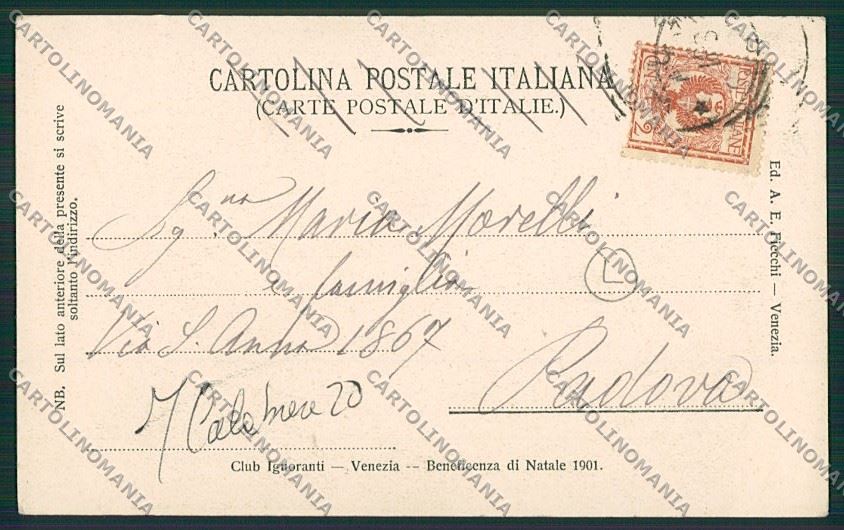 CARTOLINA POSTALE ITALIANA
(CARTE POSTALE D'ITALIE.)
POSTE ITALIANE
2
Sg.na Maria Morelli
e famiglia
Via S. Anna 1867
Padova
L
NB. Sul lato anteriore della presente si scrive
soltanto l'indirizzo.
Ed. A. E. Fiecchi — Venezia.
Club Ignoranti — Venezia -- Beneficenza di Natale 1901.
CARTOLINOMANIA